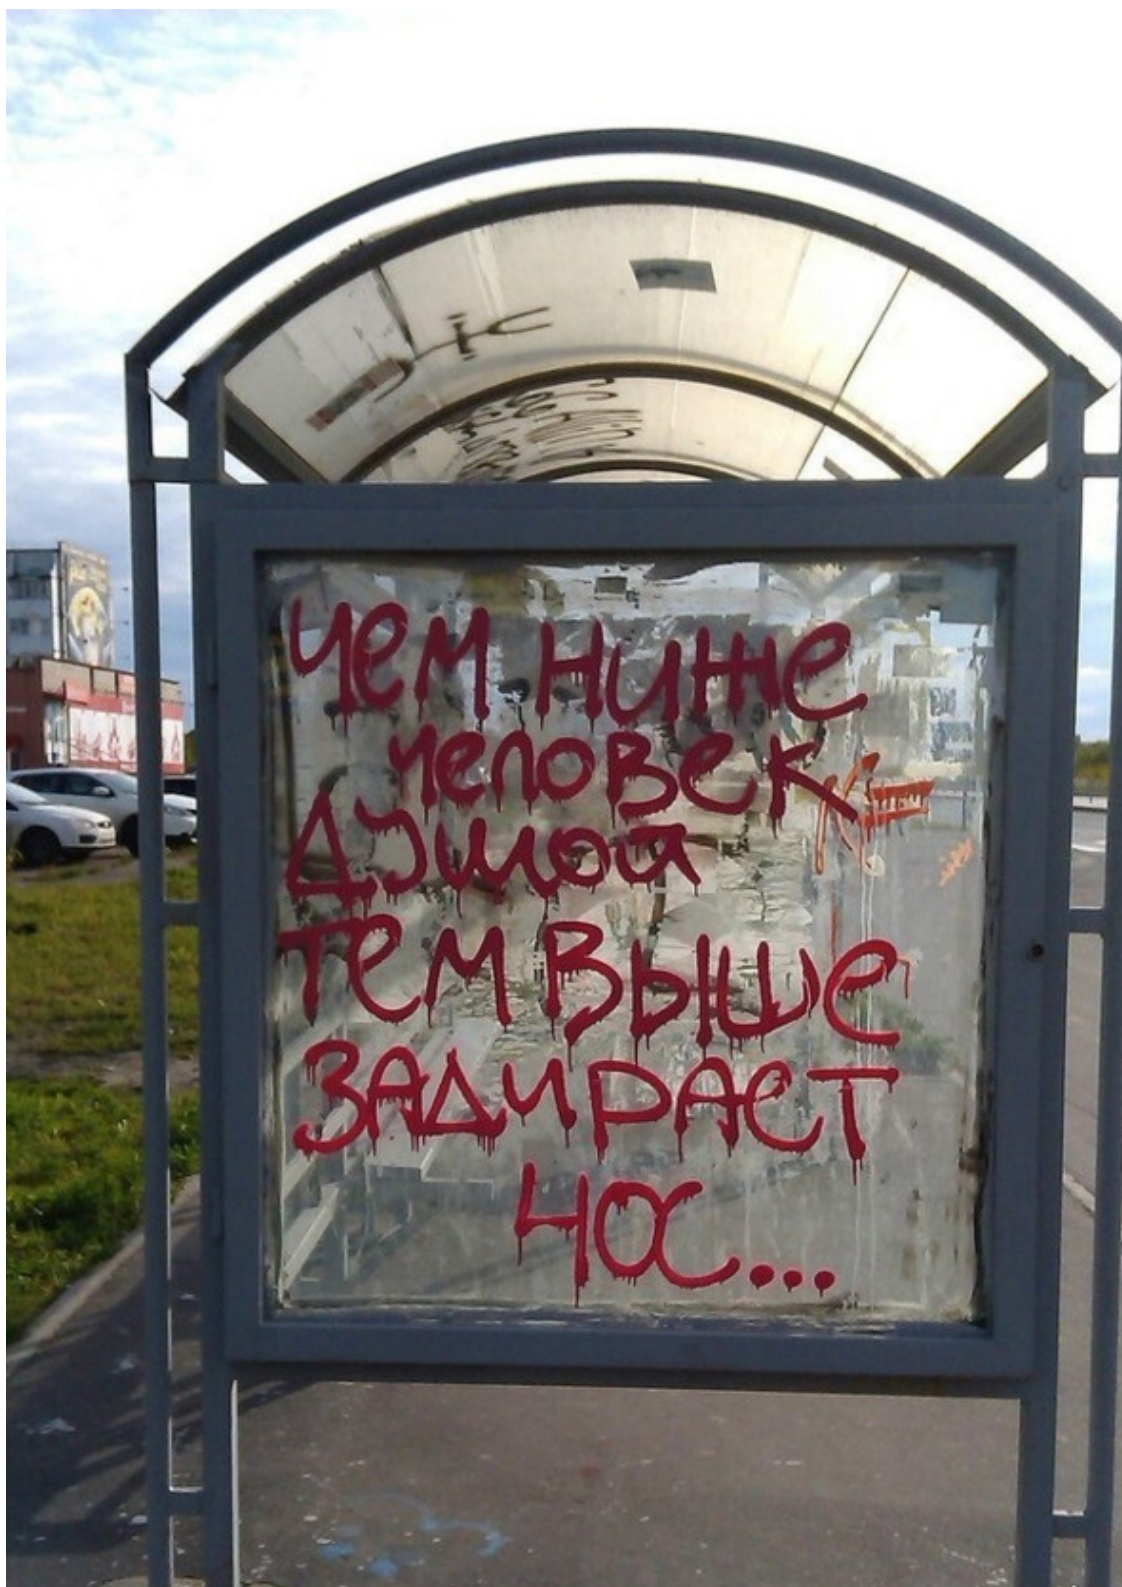 Чем ниже
человек
душой
тем выше
задирает
нос...